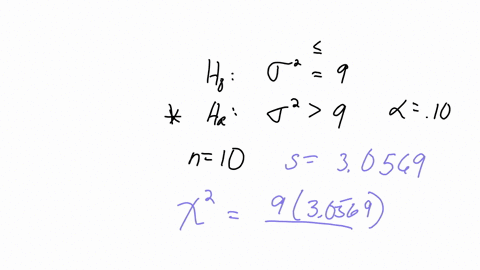 ≤
H₀: σ² = 9
* Hₐ: σ² > 9 α=.10
n=10 s= 3.0569
χ² = 9(3.0569)